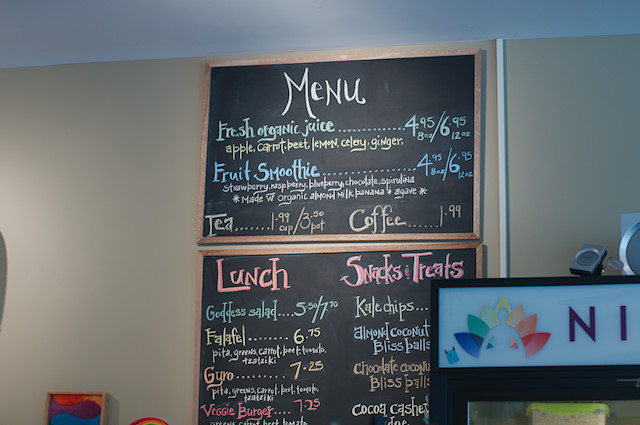 Menu
Fresh organic juice ............ 4.95/6.95
8oz 12oz
apple, carrot, beet, lemon, celery, ginger.
Fruit Smoothie ............... 4.95/6.95
8oz 12oz
strawberry, raspberry, blueberry, chocolate, spirulina
* Made w organic almond milk banana & agave *
Tea.......1.99/3.50 Coffee.......1.99
cup pot
Lunch
Goddess salad....5.50/7.70
Falafel .... 6.75
pita, greens, carrot, beet, tomato,
tzatziki
Gyro ...... 7.25
pita, greens, carrot, beet, tomato,
tzatziki
Veggie Burger.... 7.25
greens, carrot, beet, tomato
Snacks & Treats
Kale chips....
almond coconut
Bliss balls
chocolate coconut
Bliss balls
cocoa cashew
NI